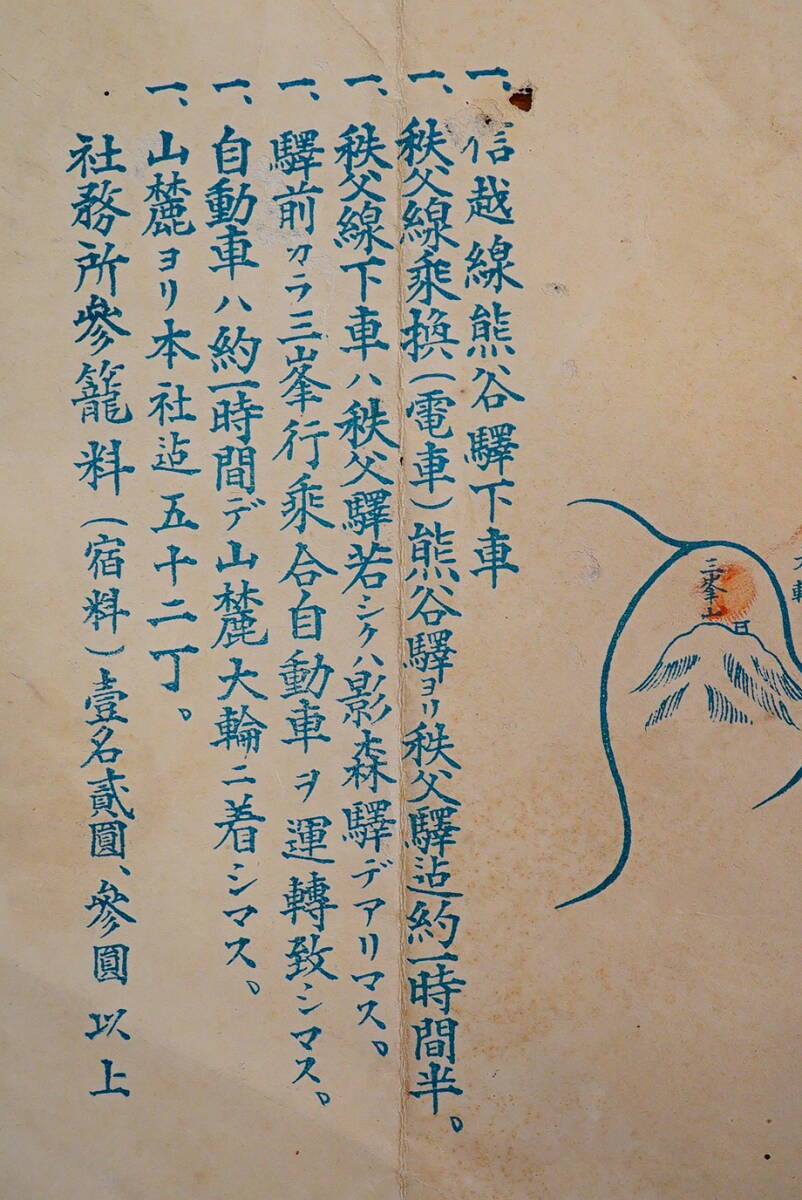 一、信越線熊谷驛下車
一、秩父線乘換（電車）熊谷驛ヨリ秩父驛迠約一時間半。
一、秩父線下車ハ秩父驛若シクハ影森驛デアリマス。
一、驛前カラ三峯行乘合自動車ヲ運轉致シマス。
一、自動車ハ約一時間デ山麓大輪ニ着シマス。
一、山麓ヨリ本社迠五十二丁。
社務所參籠料（宿料）壹名貳圓、參圓以上
三峯山